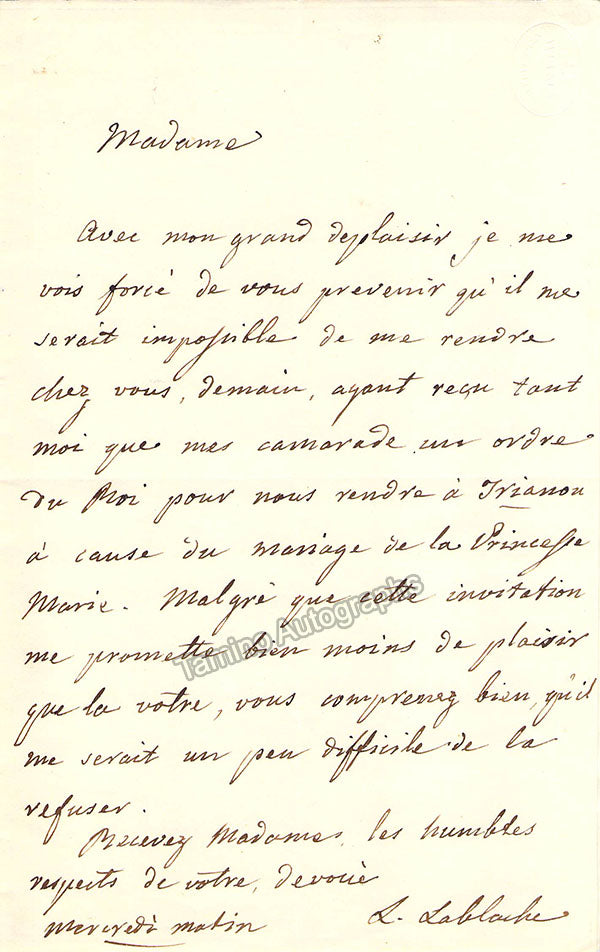 Madame
Avec mon grand deplaisir je me
vois forcé de vous prevenir qu'il me
serait impossible de me rendre
chez vous, demain, ayant reçu tant
moi que mes camarade un ordre
du Roi pour nous rendre à Trianon
à cause du mariage de la Princesse
Marie. Malgrè que cette invitation
me promette bien moins de plaisir
que la votre, vous comprenez bien, qu'il
me serait un peu difficile de la
refuser.
Recevez Madame, les humbles
respects de votre, devouè
Mercredì matin L. Lablache
Taming Autographs